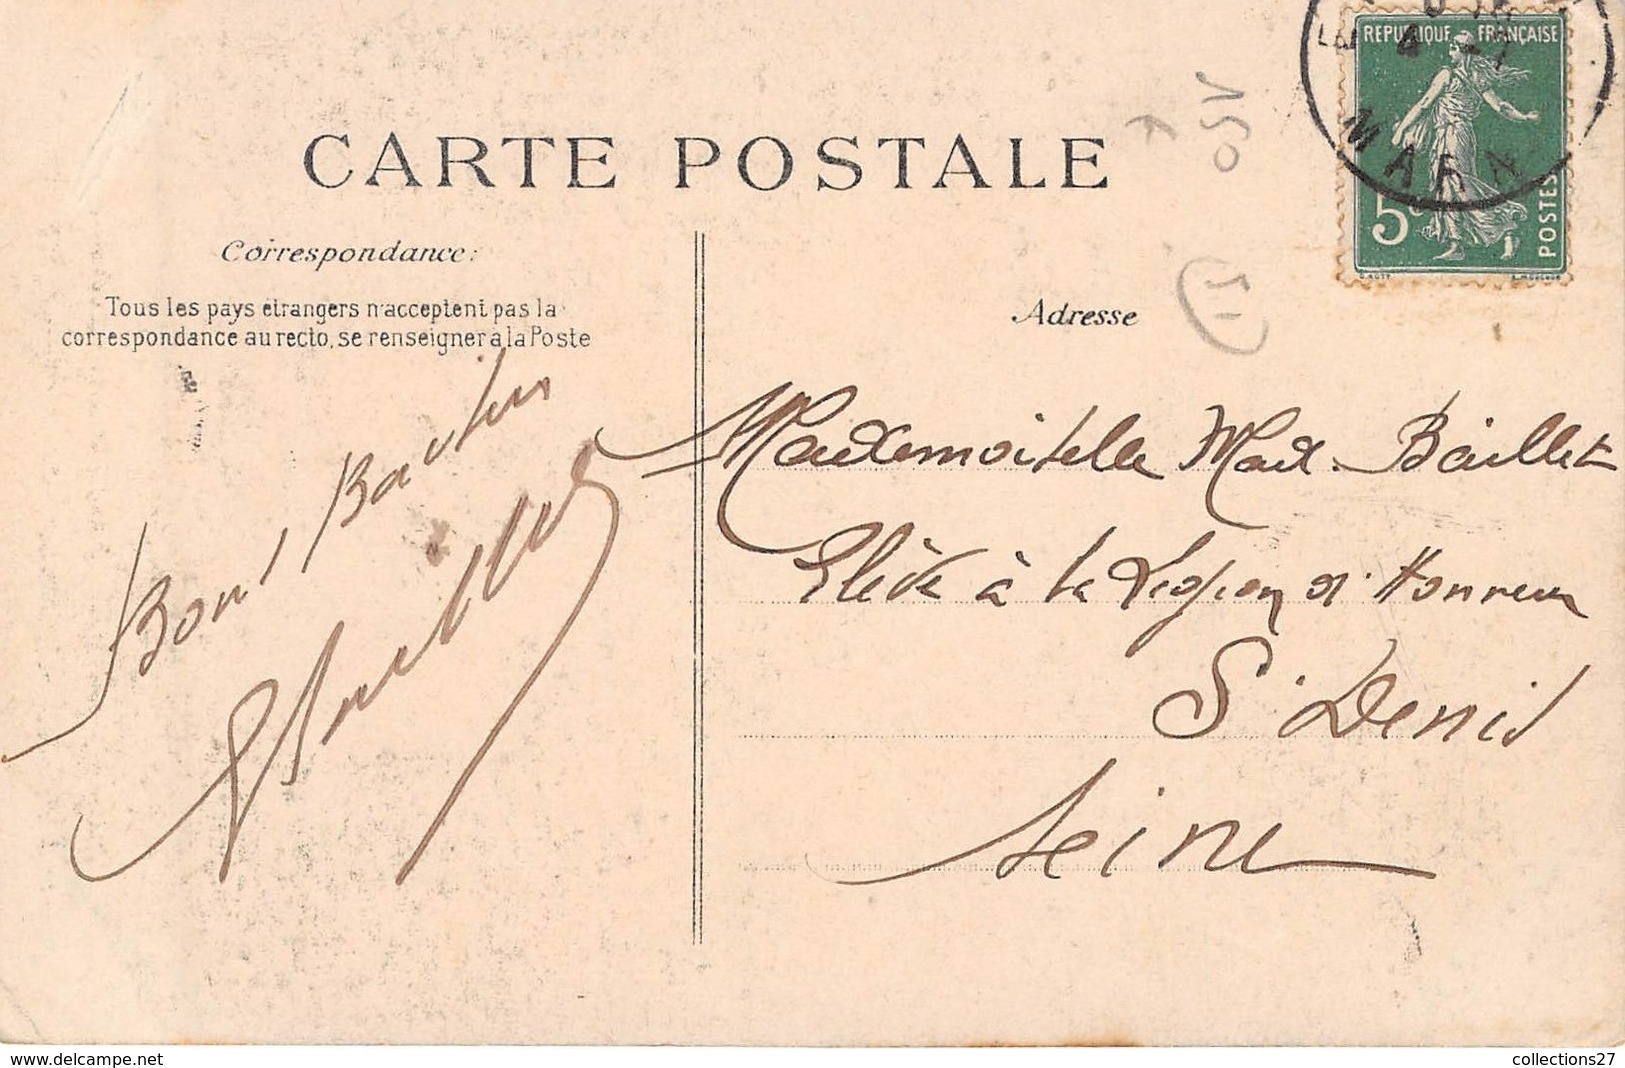 CARTE POSTALE
Correspondance:
Tous les pays étrangers n'acceptent pas la
correspondance au recto, se renseigner à la Poste
Adresse
REPUBLIQUE FRANÇAISE
5c
POSTES
MARN
Bons Baisers
Mademoiselle Baillet
Elève à la Légion d'Honneur
St Denis
Seine
www.delcampe.net
collections27